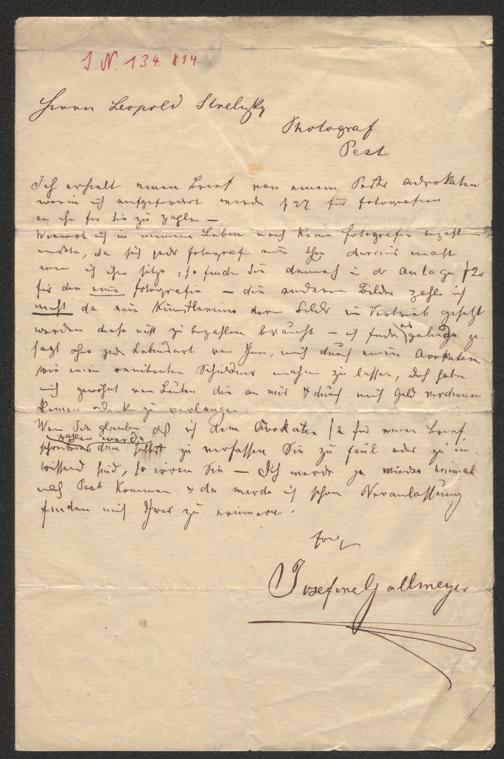 I.N. 134.814
Herrn Leopold Strelizky
Photograf
Pest
Ich erhielt einen Brief von einem Pester Advokaten
worin ich aufgefordert werde f 27 für fotografien
an ihn für Sie zu zahlen —
Wiewol ich in meinem Leben noch keine fotografien bezahlt
mußte, da sich jeder fotograf eine Ehre daraus macht
wenn ich ihm sitze, so finden Sie dennoch in der Anlage f 20
für die eine fotografie — die anderen Bilder zahle ich
nicht da eine Künstlerinn deren Bilder in Vertrieb gesetzt
werden diese nicht zu bezahlen braucht — ich finde es gelinde ge
sagt ohne jede Lebensart von Ihnen, mich durch einen Advokaten
wie einen renitenten Schuldner mahnen zu lassen, doch habe
mich gewöhnt von Leuten die an mir & durch mich Geld verdienen
keinen Dank zu verlangen
Wenn Sie glauben daß ich dem Advokaten f 2 für einen Brief
zahlen werde
selbst zu verfassen Sie zu faul oder zu un
wissend sind, so irren Sie — Ich werde ja wieder einmal
nach Pest kommen & da werde ich schon Veranlassung
finden mich Ihrer zu erinnern.
Josefine Gallmeyer